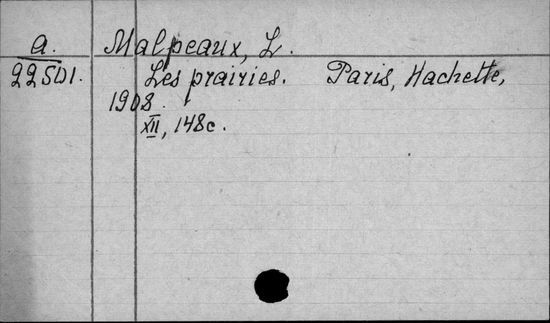 a. Malpeaux, L.
22501. Les prairies. Paris, Hachette,
1908.
XII, 148c.